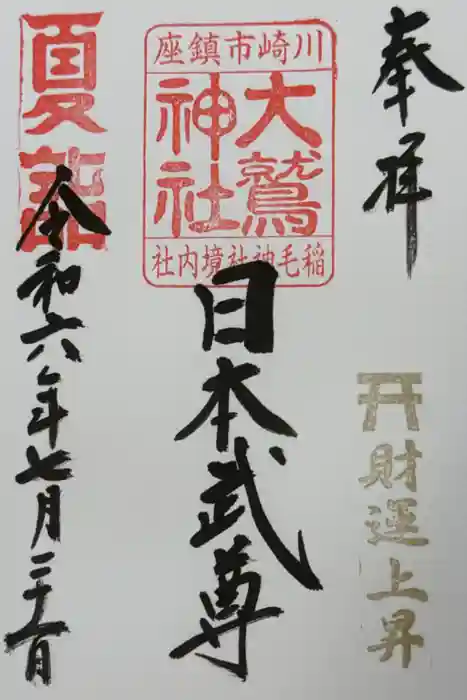 奉拝
財運上昇
川崎市鎮座
大鷲
神社
稲毛神社境内社
日本武尊
夏詣
令和六年七月二十一日